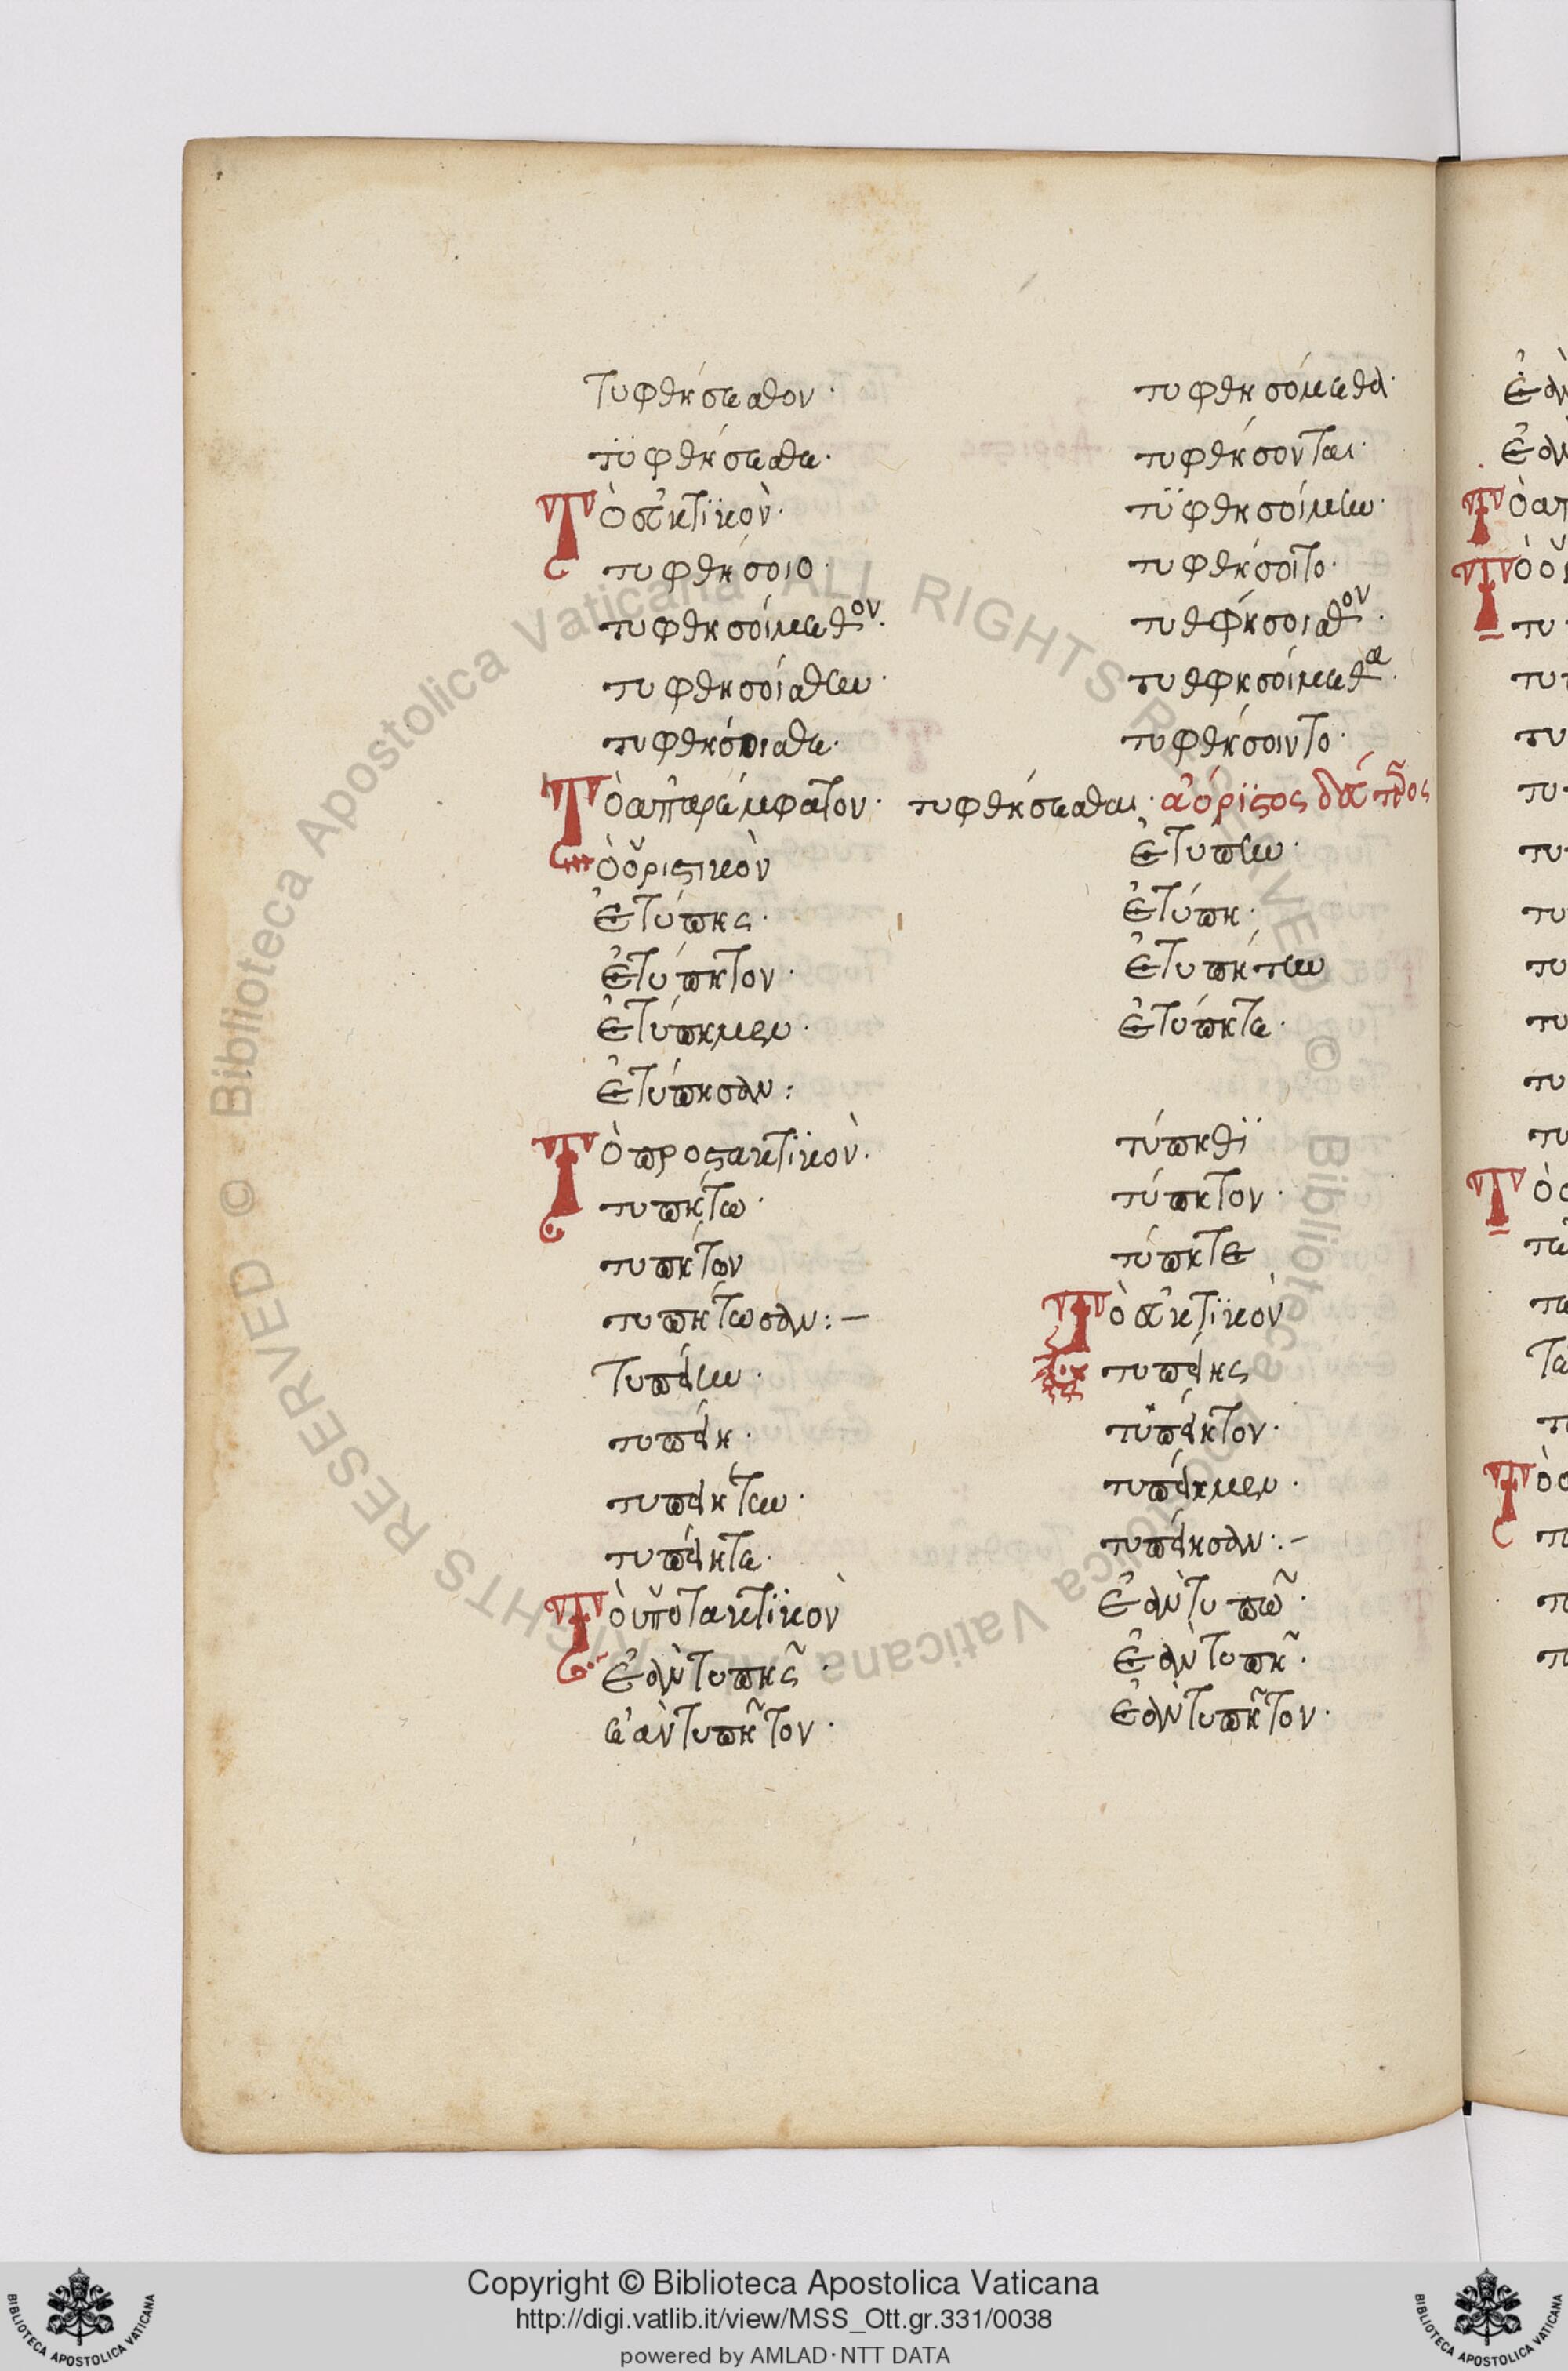 τυφθήσεσθον· τυφθησόμεθα·
τϋφθήσεσθε· τυφθήσονται·
Τὸ εὐκτϊκὸν· τϋφθησοίμην·
τυφθήσοιο· τυφθήσοιτο·
τυφθησοίμεθον· τυθφήσοισθον·
τυφθησοίσθην· τυθφησοίμεθα·
τυφθήσοισθε· τυφθήσοιντο·
Τὸ ἀπαρέμφατον· τυφθήσεσθαι· ἀόρϊστος δεύτερος
Τὸ ὁριστικὸν ἐτύπην·
ἐτύπης· ἐτύπη·
ἐτύπητον· ἐτυπήτην
ἐτύπημεν· ἐτύπητε·
ἐτύπησαν:
Τὸ προστακτϊκὸν· τύπηθϊ
τυπήτω· τύπητον·
τυπήτων τύπητε
τυπήτωσαν:– Τὸ εὐκτϊκὸν
τυπείην· τυπείης
τυπείη· τυπείητον·
τυπειήτην· τυπείημεν·
τυπείητε· τυπείησαν:–
Τὸ ὑποτακτϊκὸν ἐὰν τυπῶ·
ἐὰν τυπῆς· ἐὰν τυπῆ·
ἐὰν τυπῆτον· ἐὰν τυπῆτον·
Copyright © Biblioteca Apostolica Vaticana
http://digi.vatlib.it/view/MSS_Ott.gr.331/0038
powered by AMLAD·NTT DATA